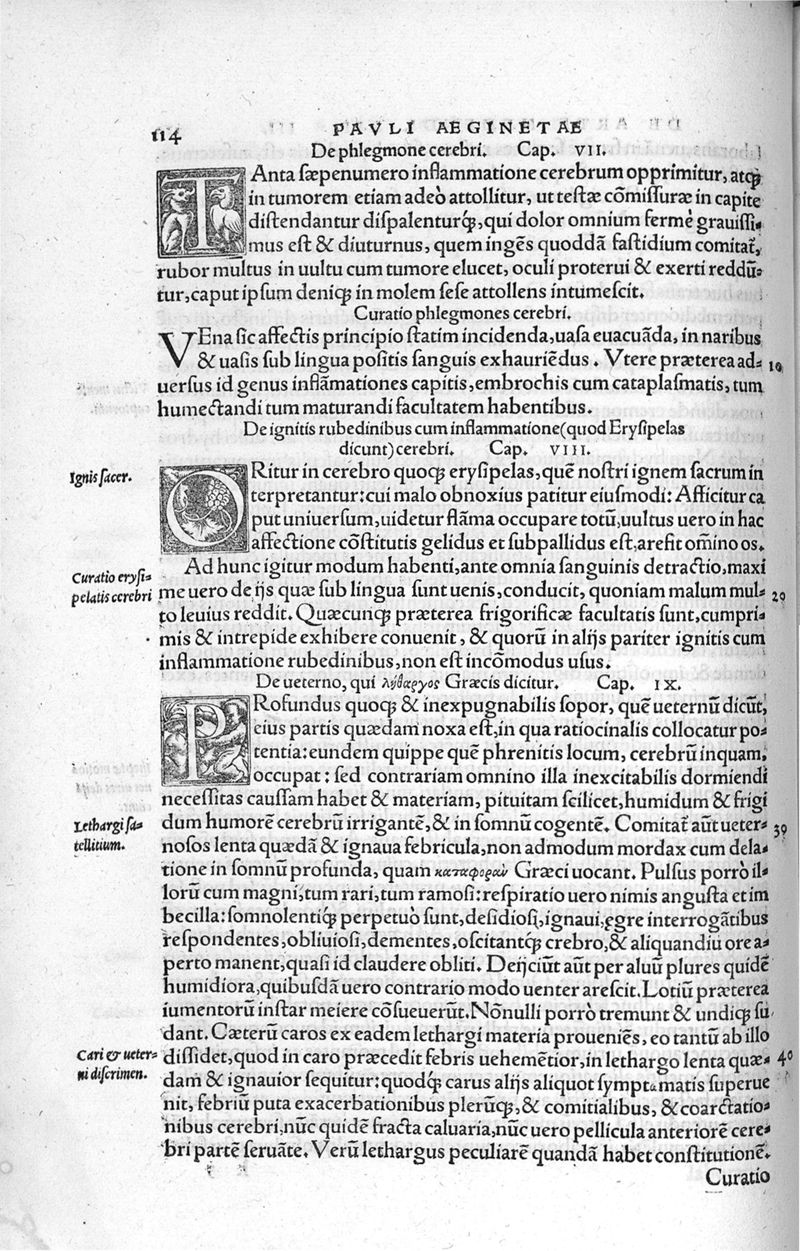 114 PAVLI AEGINETAE
De phlegmone cerebri. Cap. VII.
TAnta sæpenumero inflammatione cerebrum opprimitur, atq́;
in tumorem etiam adeò attollitur, ut testæ cōmissuræ in capite
distendantur dispalenturq́;, qui dolor omnium fermè grauissi-
mus est & diuturnus, quem ingēs quoddā fastidium comitat,
rubor multus in uultu cum tumore elucet, oculi proterui & exerti reddū-
tur, caput ipsum deniq; in molem sese attollens intumescit.
Curatio phlegmones cerebri.
VEna sic affectis principio statim incidenda, uasa euacuāda, in naribus
& uasis sub lingua positis sanguis exhauriēdus. Vtere præterea ad- 10
uersus id genus inflāmationes capitis, embrochis cum cataplasmatis, tum
humectandi tum maturandi facultatem habentibus.
De ignitis rubedinibus cum inflammatione (quod Erysipelas
dicunt) cerebri. Cap. VIII.
Ignis sacer.
ORitur in cerebro quoq; erysipelas, quē nostri ignem sacrum in
terpretantur: cui malo obnoxius patitur eiusmodi: Afficitur ca
put uniuersum, uidetur flāma occupare totū, uultus uero in hac
affectione cōstitutis gelidus et subpallidus est, arefit om̄ino os.
Curatio erysi-
pelatis cerebri
Ad hunc igitur modum habenti, ante omnia sanguinis detractio, maxi
me uero de ijs quæ sub lingua sunt uenis, conducit, quoniam malum mul- 20
to leuius reddit. Quæcunq; præterea frigorificæ facultatis sunt, cumpri-
mis & intrepide exhibere conuenit, & quorū in alijs pariter ignitis cum
inflammatione rubedinibus, non est incōmodus usus.
De ueterno, qui λήθαργος Græcis dicitur. Cap. IX.
PRofundus quoq; & inexpugnabilis sopor, quē ueternū dicūt,
eius partis quædam noxa est, in qua ratiocinalis collocatur po-
tentia: eundem quippe quē phrenitis locum, cerebrū inquam,
occupat: sed contrariam omnino illa inexcitabilis dormiendi
necessitas caussam habet & materiam, pituitam scilicet, humidum & frigi
Lethargi sa-
tellitium.
dum humorē cerebrū irrigantē, & in somnū cogentē. Comitat aūt ueter- 30
nosos lenta quædā & ignaua febricula, non admodum mordax cum dela-
tione in somnū profunda, quam καταφορὰν Græci uocant. Pulsus porrò il-
lorū cum magni, tum rari, tum ramosi: respiratio uero nimis angusta et im
becilla: somnolentiq́; perpetuò sunt, desidiosi, ignaui, ęgre interrogātibus
respondentes, obliuiosi, dementes, oscitantq́; crebro, & aliquandiu ore a-
perto manent, quasi id claudere obliti. Deijciūt aūt per aluū plures quidē
humidiora, quibusdā uero contrario modo uenter arescit. Lotiū præterea
iumentorū instar meiere cōsueuerūt. Nōnulli porrò tremunt & undiq; su
dant. Cæterū caros ex eadem lethargi materia proueniēs, eo tantū ab illo
Cari & ueter-
ni discrimen.
dissidet, quod in caro præcedit febris uehemētior, in lethargo lenta quæ- 40
dam & ignauior sequitur: quodq́; carus alijs aliquot symptamatis superue
nit, febriū puta exacerbationibus plerūq;, & comitialibus, & coarctatio-
nibus cerebri, nūc quidē fracta caluaria, nūc uero pellicula anteriorē cere-
bri partē seruāte. Verū lethargus peculiarē quandā habet constitutionē.
Curatio